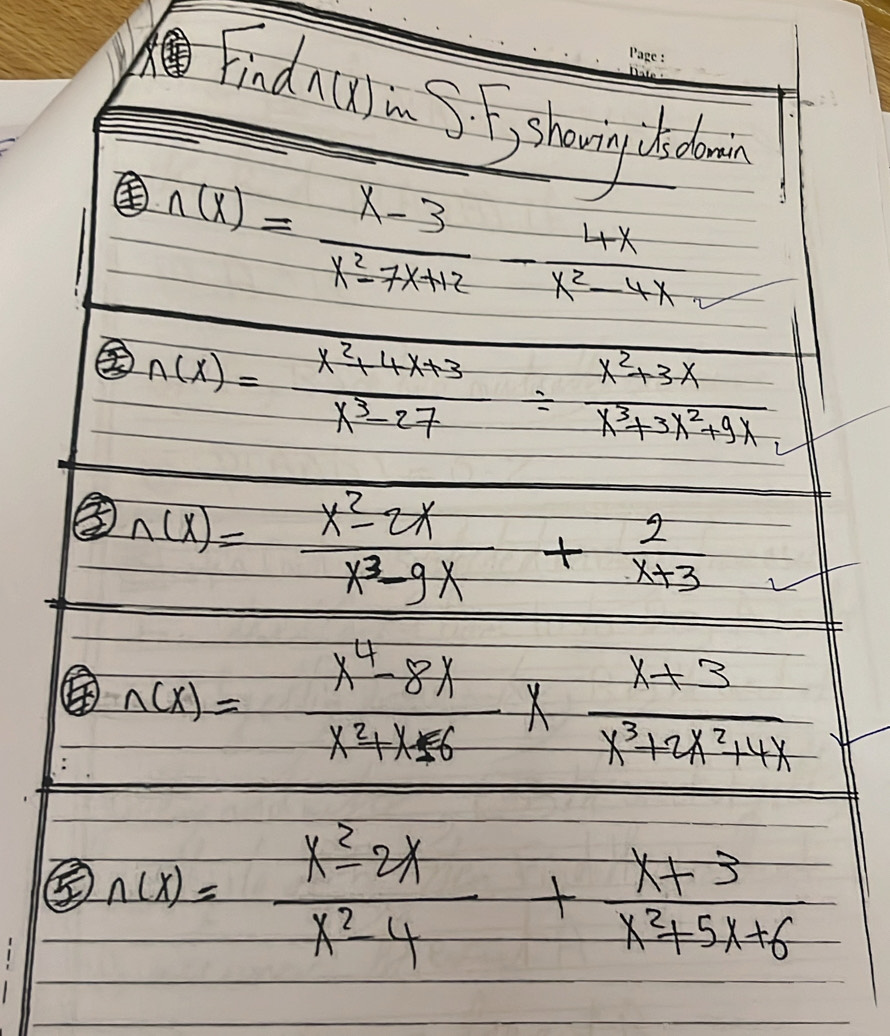 Page :
Date :
Find n(x) in S.F, showing its domain
① n(x) = \frac{x-3}{x²-7x+12} - \frac{4x}{x²-4x}
② n(x) = \frac{x²+4x+3}{x³-27} ÷ \frac{x²+3x}{x³+3x²+9x}
③ n(x) = \frac{x²-2x}{x³-9x} + \frac{2}{x+3}
④ n(x) = \frac{x⁴-8x}{x²+x-6} × \frac{x+3}{x³+2x²+4x}
⑤ n(x) = \frac{x²-2x}{x²-4} + \frac{x+3}{x²+5x+6}